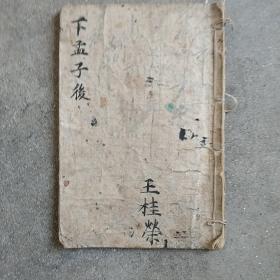 下孟子後
王桂榮